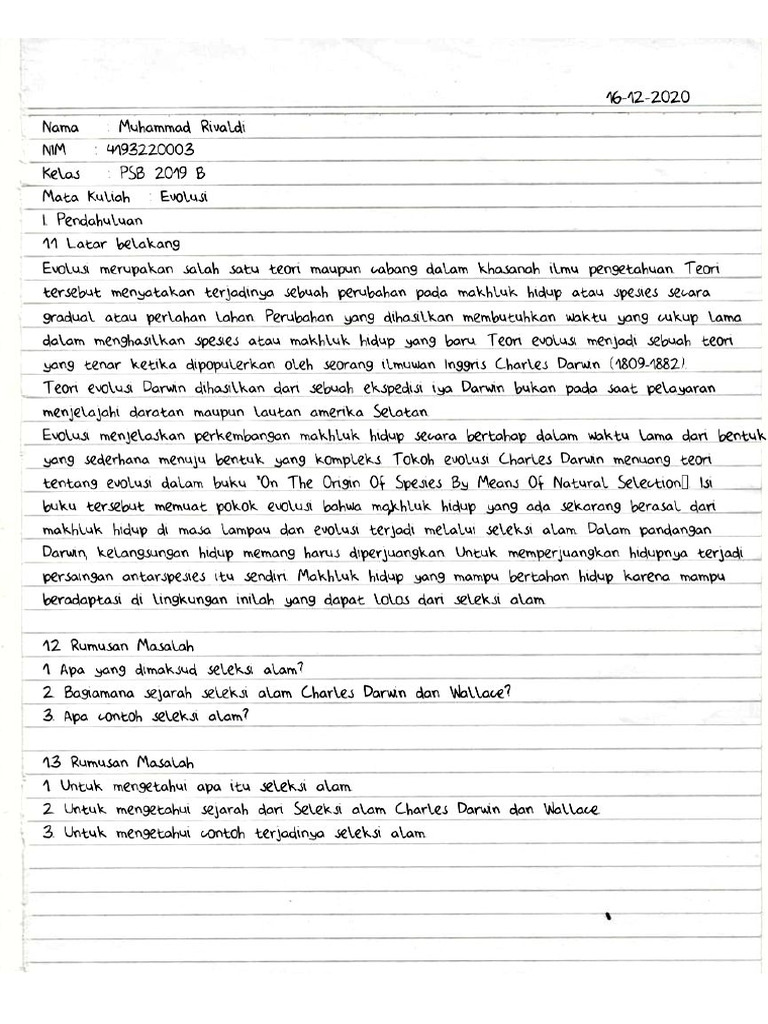 16-12-2020
Nama : Muhammad Rivaldi
NIM : 4193220003
Kelas : PSB 2019 B
Mata Kuliah : Evolusi
I. Pendahuluan
11 Latar belakang
Evolusi merupakan salah satu teori maupun cabang dalam khasanah ilmu pengetahuan Teori
tersebut menyatakan terjadinya sebuah perubahan pada makhluk hidup atau spesies secara
gradual atau perlahan lahan Perubahan yang dihasilkan membutuhkan waktu yang cukup lama
dalam menghasilkan spesies atau makhluk hidup yang baru. Teori evolusi menjadi sebuah teori
yang tenar ketika dipopulerkan oleh seorang ilmuwan Inggris Charles Darwin (1809-1882).
Teori evolusi Darwin dihasilkan dari sebuah ekspedisi iya Darwin bukan pada saat pelayaran
menjelajahi daratan maupun lautan amerika Selatan
Evolusi menjelaskan perkembangan makhluk hidup secara bertahap dalam waktu lama dari bentuk
yang sederhana menuju bentuk yang kompleks Tokoh evolusi Charles Darwin menuang teori
tentang evolusi dalam buku "On The Origin Of Spesies By Means Of Natural Selection▯ Isi
buku tersebut memuat pokok evolusi bahwa makhluk hidup yang ada sekarang berasal dari
makhluk hidup di masa lampau dan evolusi terjadi melalui seleksi alam. Dalam pandangan
Darwin, kelangsungan hidup memang harus diperjuangkan Untuk memperjuangkan hidupnya terjadi
persaingan antarspesies itu sendiri. Makhluk hidup yang mampu bertahan hidup karena mampu
beradaptasi di lingkungan inilah yang dapat lolos dari seleksi alam
12 Rumusan Masalah
1 Apa yang dimaksud seleksi alam?
2. Bagiamana sejarah seleksi alam Charles Darwin dan Wallace?
3. Apa contoh seleksi alam?
13 Rumusan Masalah
1 Untuk mengetahui apa itu seleksi alam
2. Untuk mengetahui sejarah dari Seleksi alam Charles Darwin dan Wallace
3. Untuk mengetahui contoh terjadinya seleksi alam